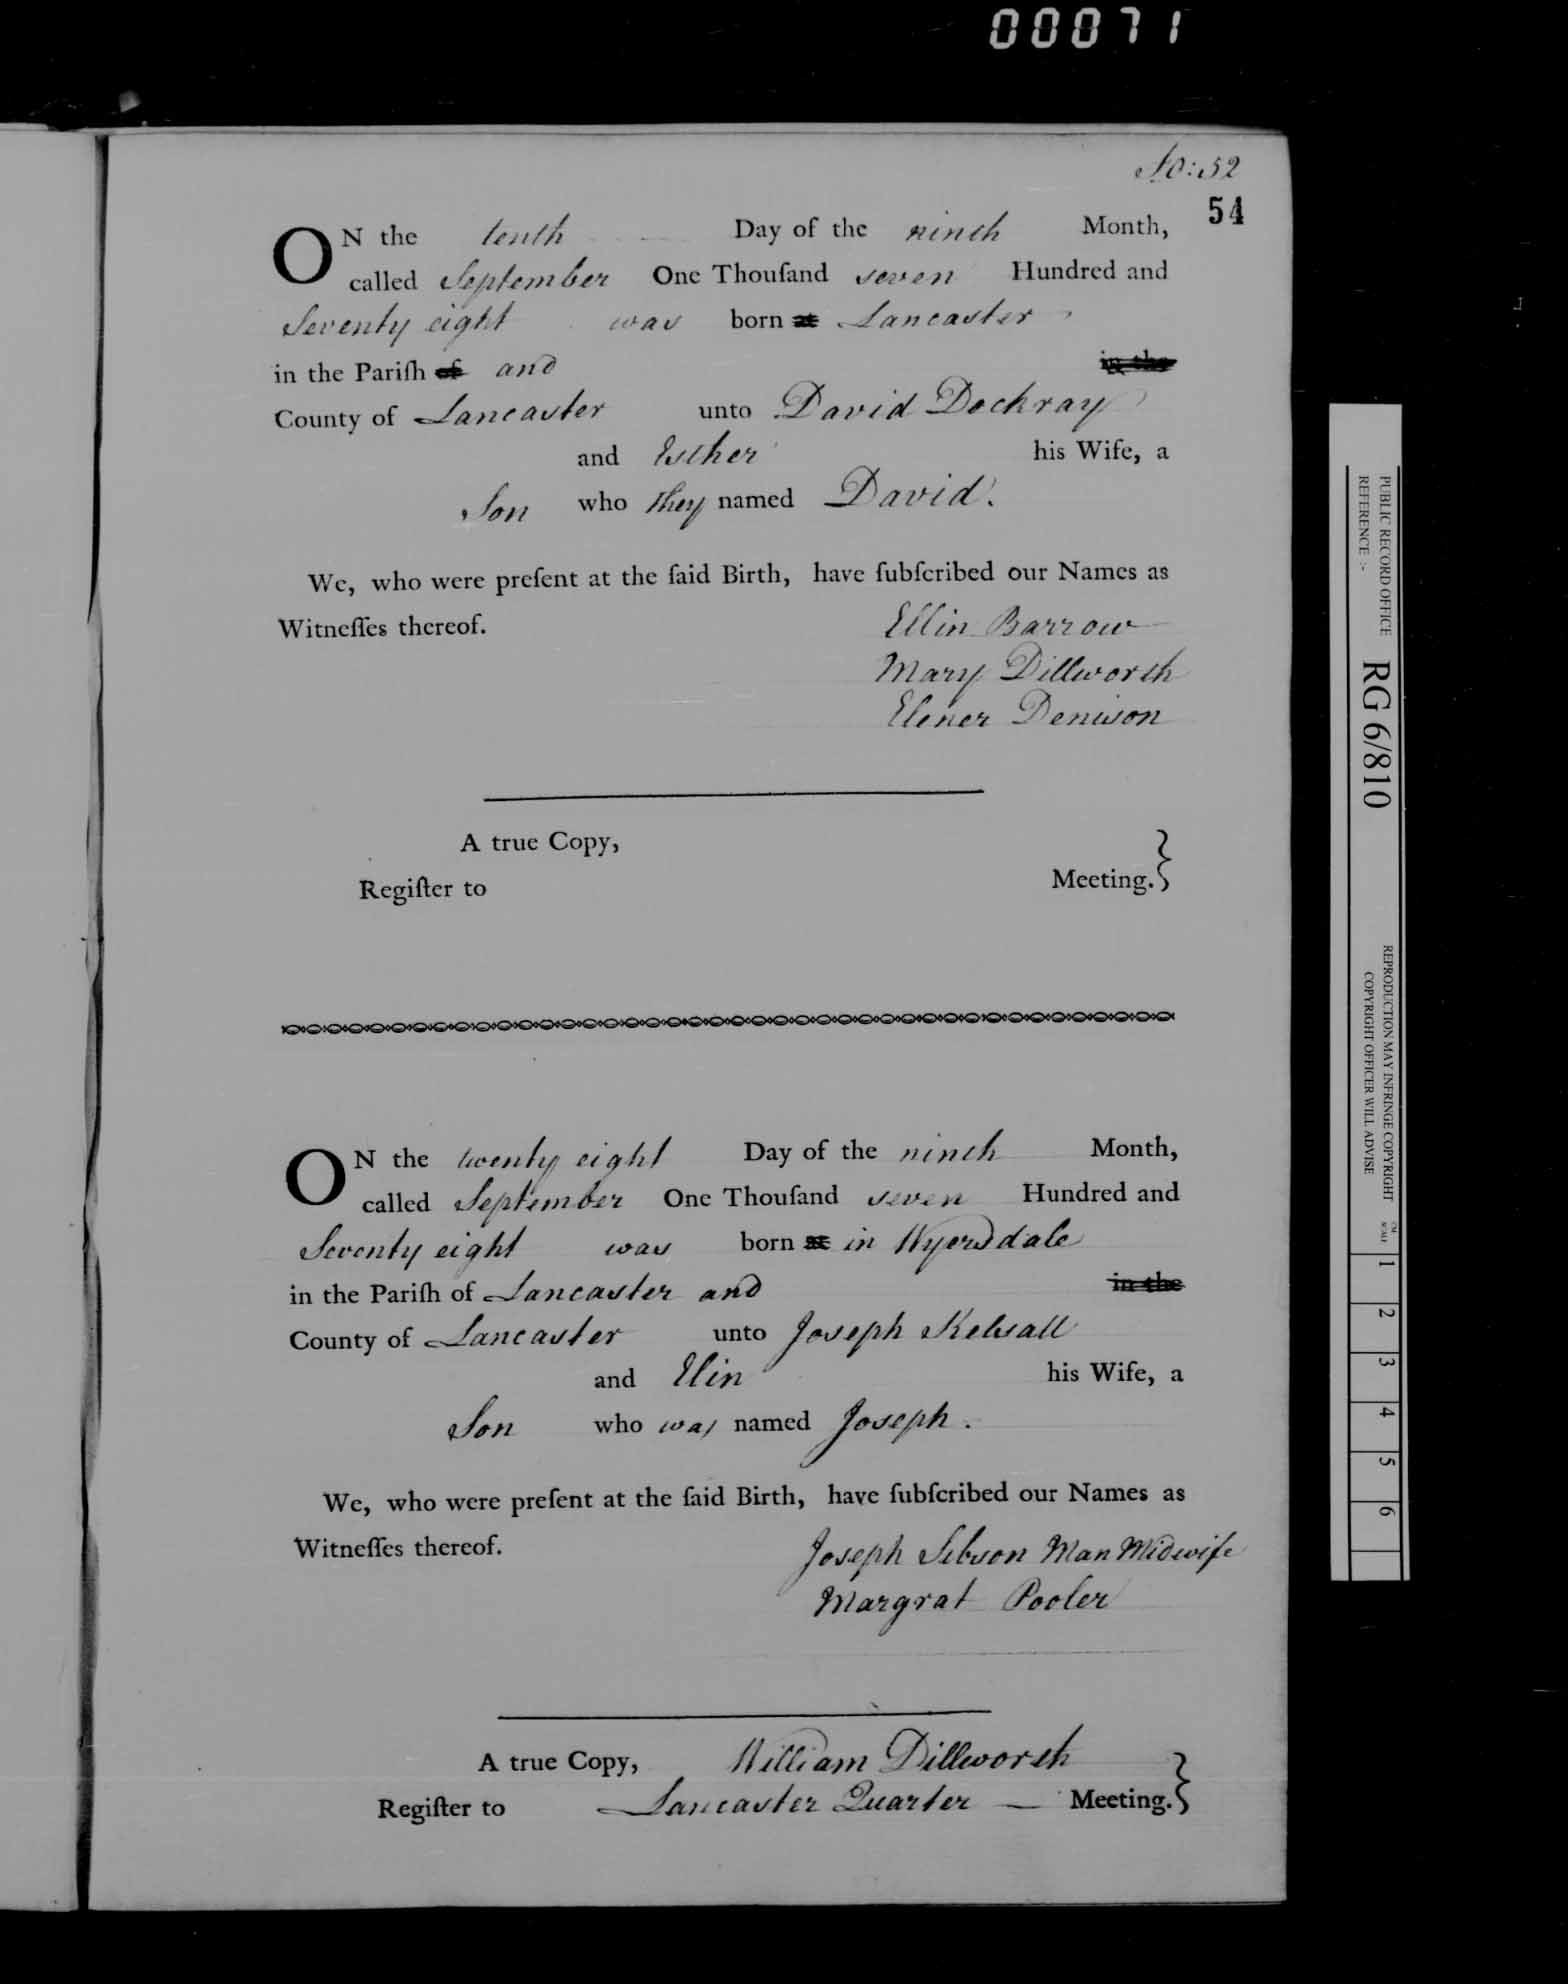 00071
fo: 52
54
ON the tenth Day of the ninth Month,
called September One Thouſand seven Hundred and
Seventy eight was born at Lancaster
in the Pariſh of and in the
County of Lancaster unto David Dockray
and Esther his Wife, a
Son who they named David.
We, who were preſent at the ſaid Birth, have ſubſcribed our Names as
Witneſſes thereof. Ellin Barrow
Mary Dillworth
Elener Denison
A true Copy,
Regiſter to Meeting.}
ON the twenty eight Day of the ninth Month,
called September One Thouſand seven Hundred and
Seventy eight was born at in Wyersdale
in the Pariſh of Lancaster and in the
County of Lancaster unto Joseph Kelsall
and Elin his Wife, a
Son who was named Joseph.
We, who were preſent at the ſaid Birth, have ſubſcribed our Names as
Witneſſes thereof. Joseph Sibson Man Midwife
Margrat Pooler
A true Copy, William Dillworth
Regiſter to Lancaster Quarter — Meeting.}
PUBLIC RECORD OFFICE
REFERENCE :-
RG 6/810
REPRODUCTION MAY INFRINGE COPYRIGHT
COPYRIGHT OFFICER WILL ADVISE
CM
SCALE
1 2 3 4 5 6